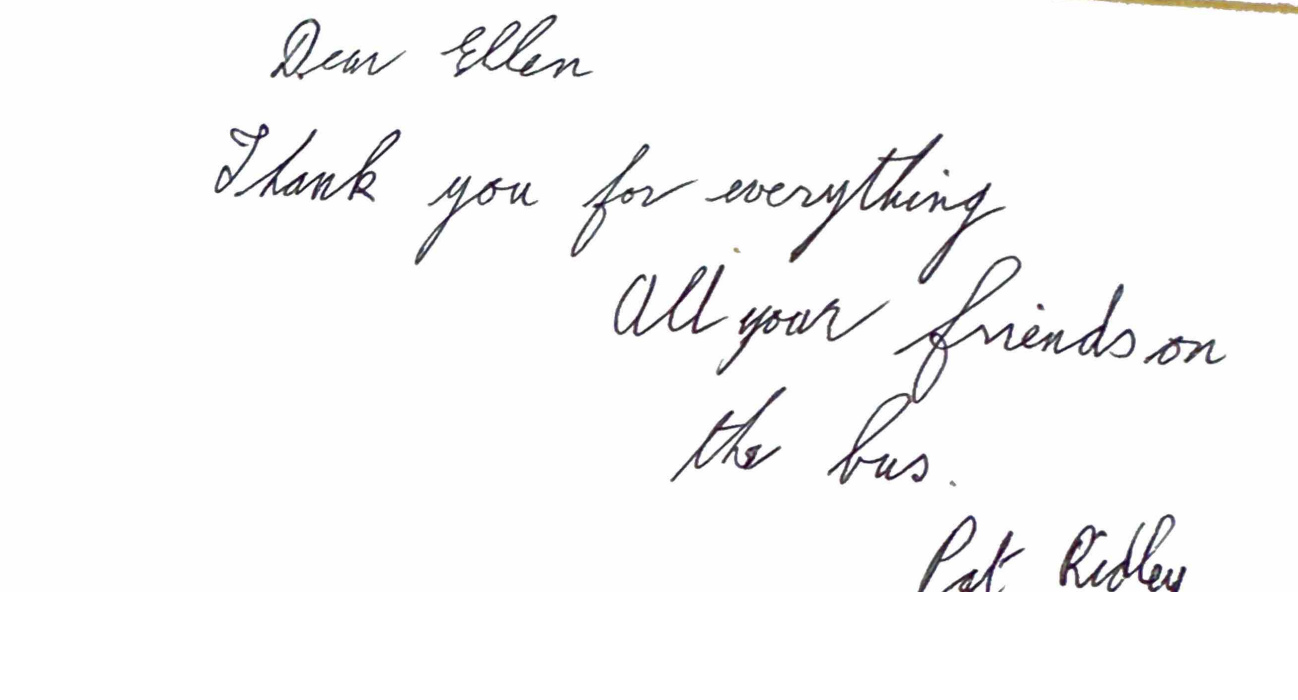 Dear Ellen
Thank you for everything
All your friends on
the bus.
Pat Ridley